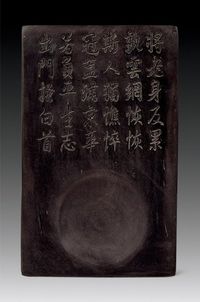 將老身反累
孰雲網恢恢
斯人獨憔悴
冠蓋滿京華
若負平生志
出門搔白首